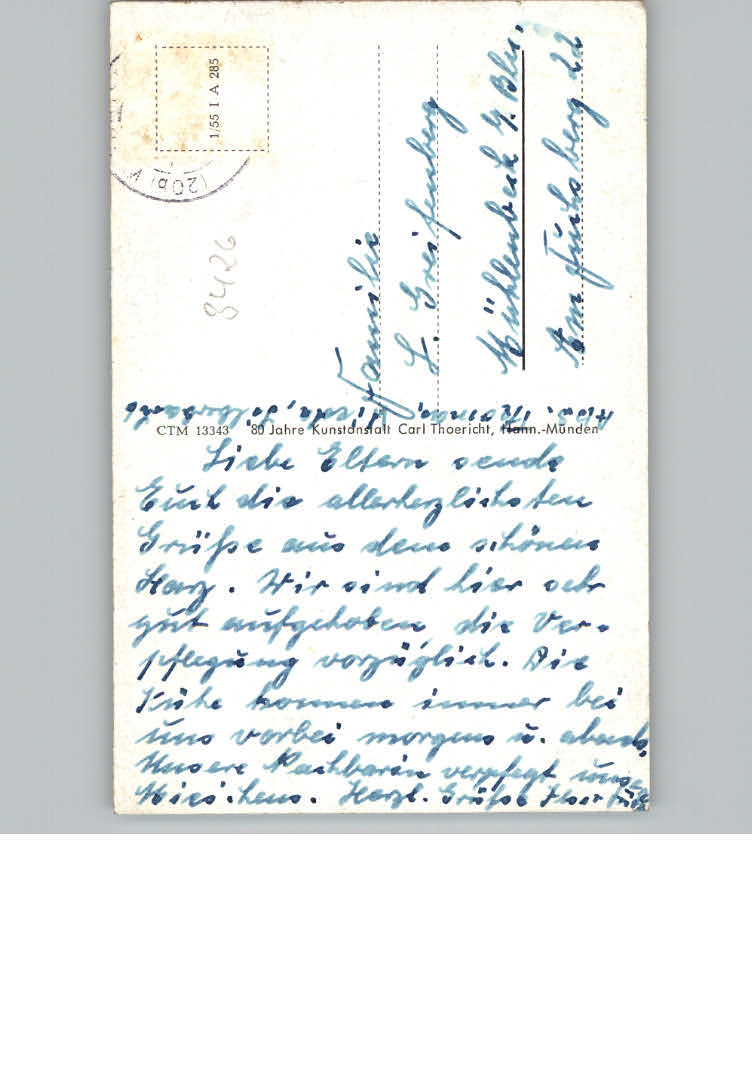 Liebe Eltern sende
Euch die allerherzlichsten
Grüße aus dem schönen
Harz. Wir sind hier sehr
gut aufgehoben, die Ver-
pflegung vorzüglich. Die
Kühe kommen immer bei
uns vorbei morgens u. abends.
Unsere Nachbarin verpflegt unser
Miezchen. Herzl. Grüße
CTM 13343 80 Jahre Kunstanstalt Carl Thoericht, Hann.-Münden
Familie
L. Greifenberg
Mühlenbeck b. Bln.
Am Fuchsberg 22
1/55 I A 285
(20b)
8426